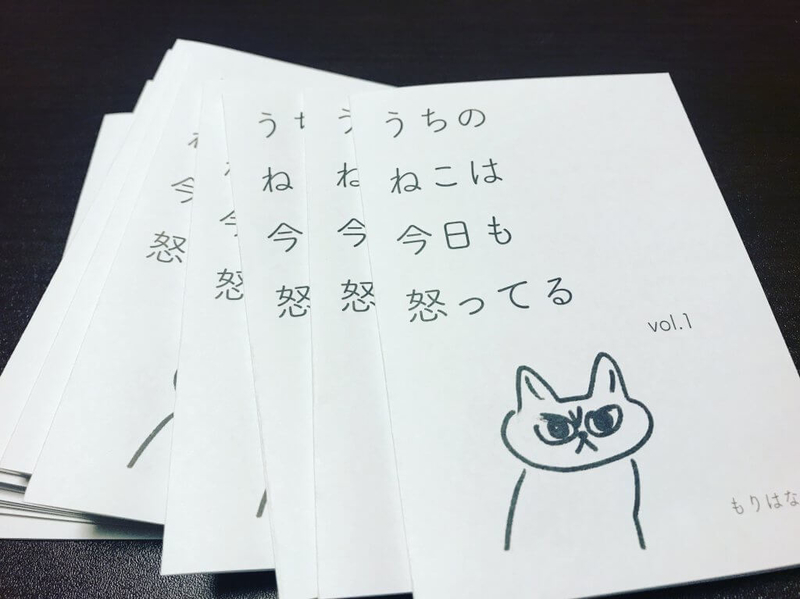 うちの
ねこは
今日も
怒ってる
vol.1
もりはな